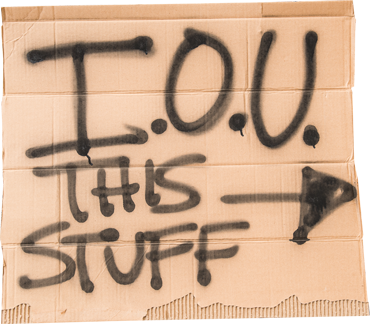 I.O.U.
THIS
STUFF